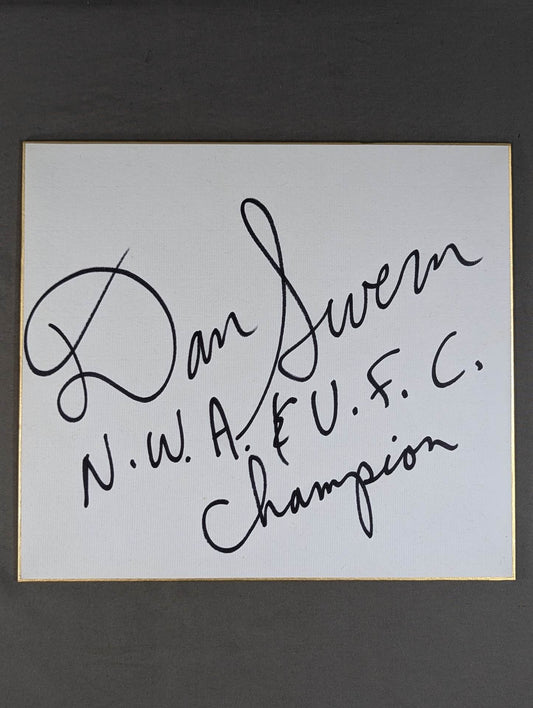 Dan Severn
N.W.A. & U.F.C.
Champion